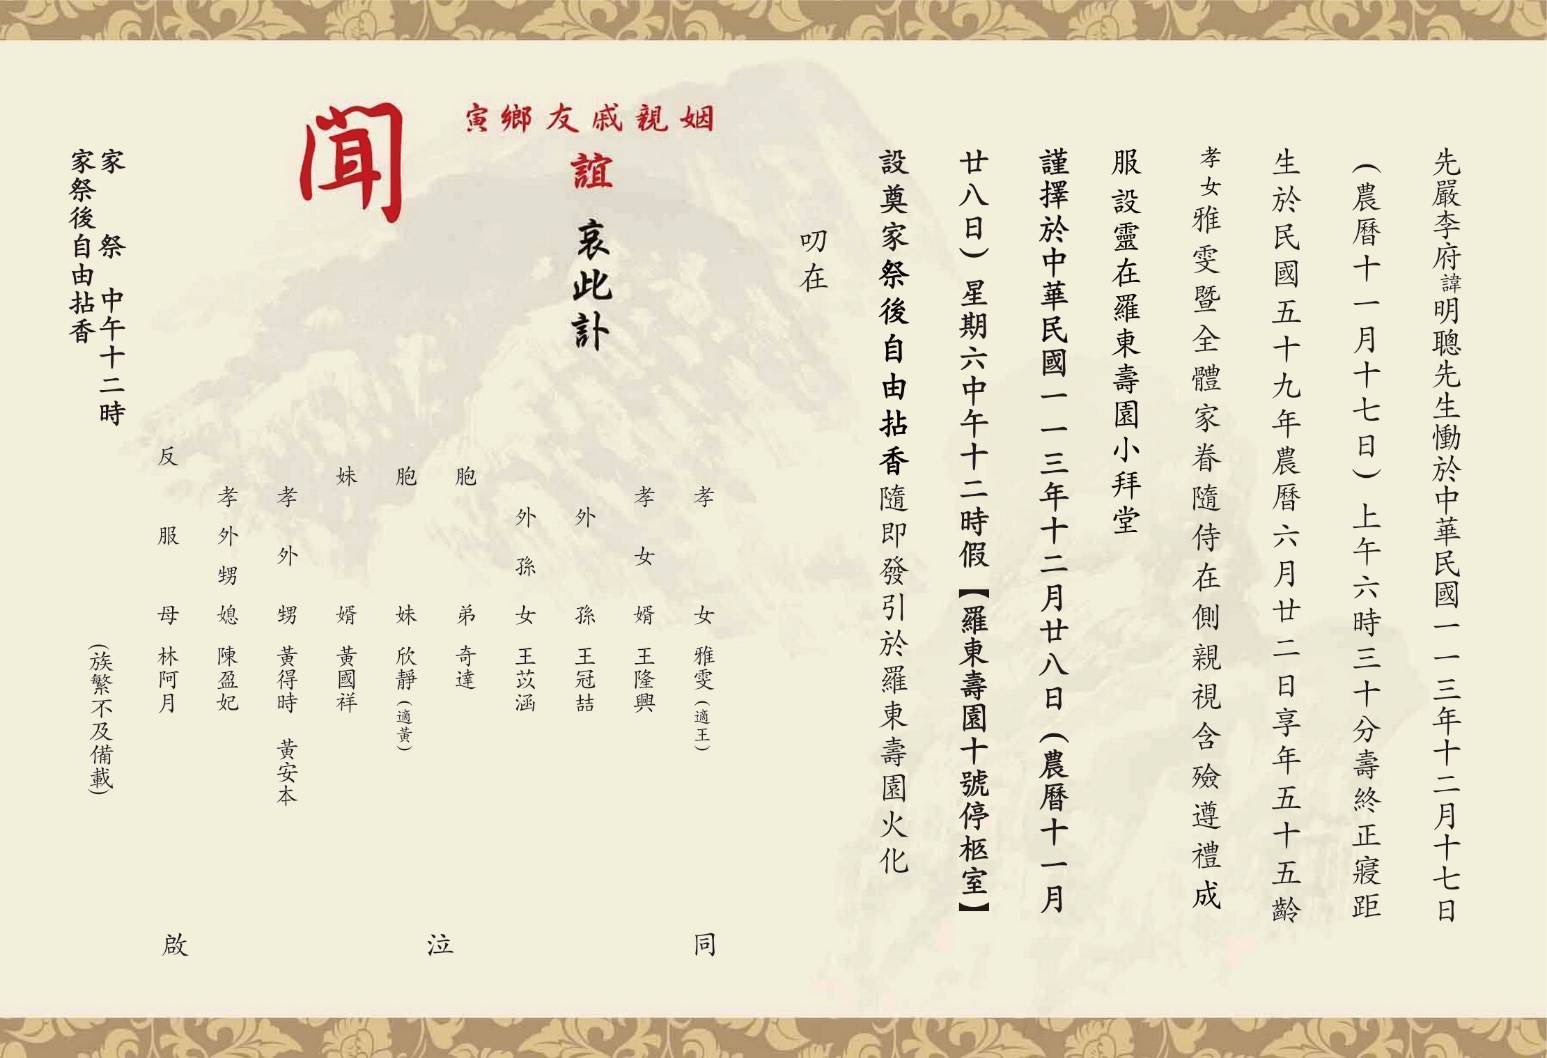 先嚴李府諱明聰先生慟於中華民國一一三年十二月十七日
(農曆十一月十七日)上午六時三十分壽終正寢距
生於民國五十九年農曆六月廿二日享年五十五齡
孝女雅雯暨全體家眷隨侍在側親視含殮遵禮成
服設靈在羅東壽園小拜堂
謹擇於中華民國一一三年十二月廿八日(農曆十一月
廿八日)星期六中午十二時假【羅東壽園十號停柩室】
設奠家祭後自由拈香隨即發引於羅東壽園火化
叨在
姻親戚友鄉寅
誼哀此訃
聞
孝女雅雯(適王)
孝女婿王隆興
外孫王冠喆
外孫女王苡涵
胞弟奇達
胞妹欣靜(適黃)
妹婿黃國祥
孝外甥黃得時 黃安本
孝外甥媳陳盈妃
反服母林阿月
同泣啟
(族繁不及備載)
家祭 中午十二時
家祭後自由拈香